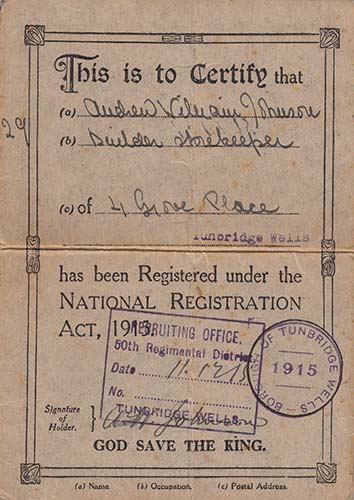 This is to Certify that
(a) Andrew William Johnson
(b) Builder Storekeeper
29
(c) of 4 Grove Place
Tunbridge Wells
has been Registered under the
NATIONAL REGISTRATION
ACT, 1915.
RECRUITING OFFICE,
50th Regimental District
Date
No.
TUNBRIDGE WELLS
BOROUGH OF TUNBRIDGE WELLS
1915
Signature of Holder.
GOD SAVE THE KING.
(a) Name. (b) Occupation. (c) Postal Address.